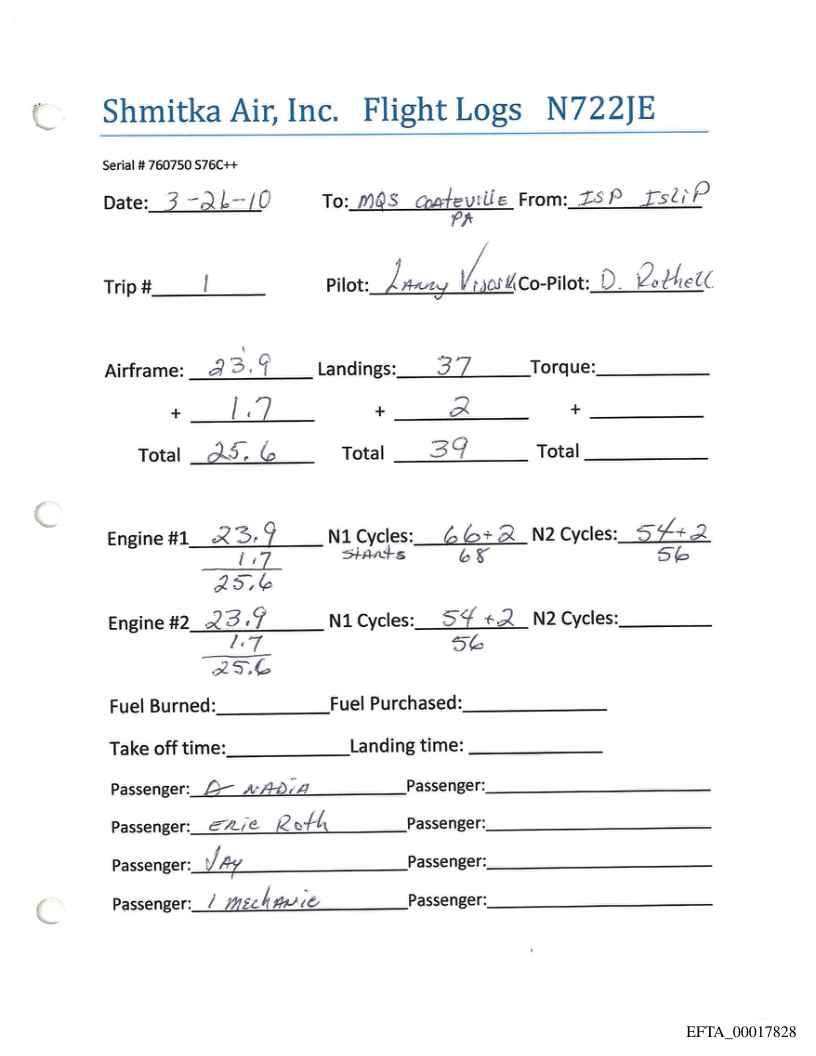 Shmitka Air, Inc. Flight Logs N722JE
Serial # 760750 S76C++
Date: 3-26-10 To: MQS COATEVILLE From: ISP ISLIP
PA
Trip # 1 Pilot: LARRY Co-Pilot: D. Rothell
Airframe: 23.9 Landings: 37 Torque:
+ 1.7 + 2 +
Total 25.6 Total 39 Total
Engine #1 23.9 N1 Cycles: 66+2 N2 Cycles: 54+2
1.7 STARTS 68 56
25.6
Engine #2 23.9 N1 Cycles: 54+2 N2 Cycles:
1.7 56
25.6
Fuel Burned: Fuel Purchased:
Take off time: Landing time:
Passenger: NADIA Passenger:
Passenger: ERIC Roth Passenger:
Passenger: JAY Passenger:
Passenger: 1 MECHANIC Passenger:
EFTA_00017828